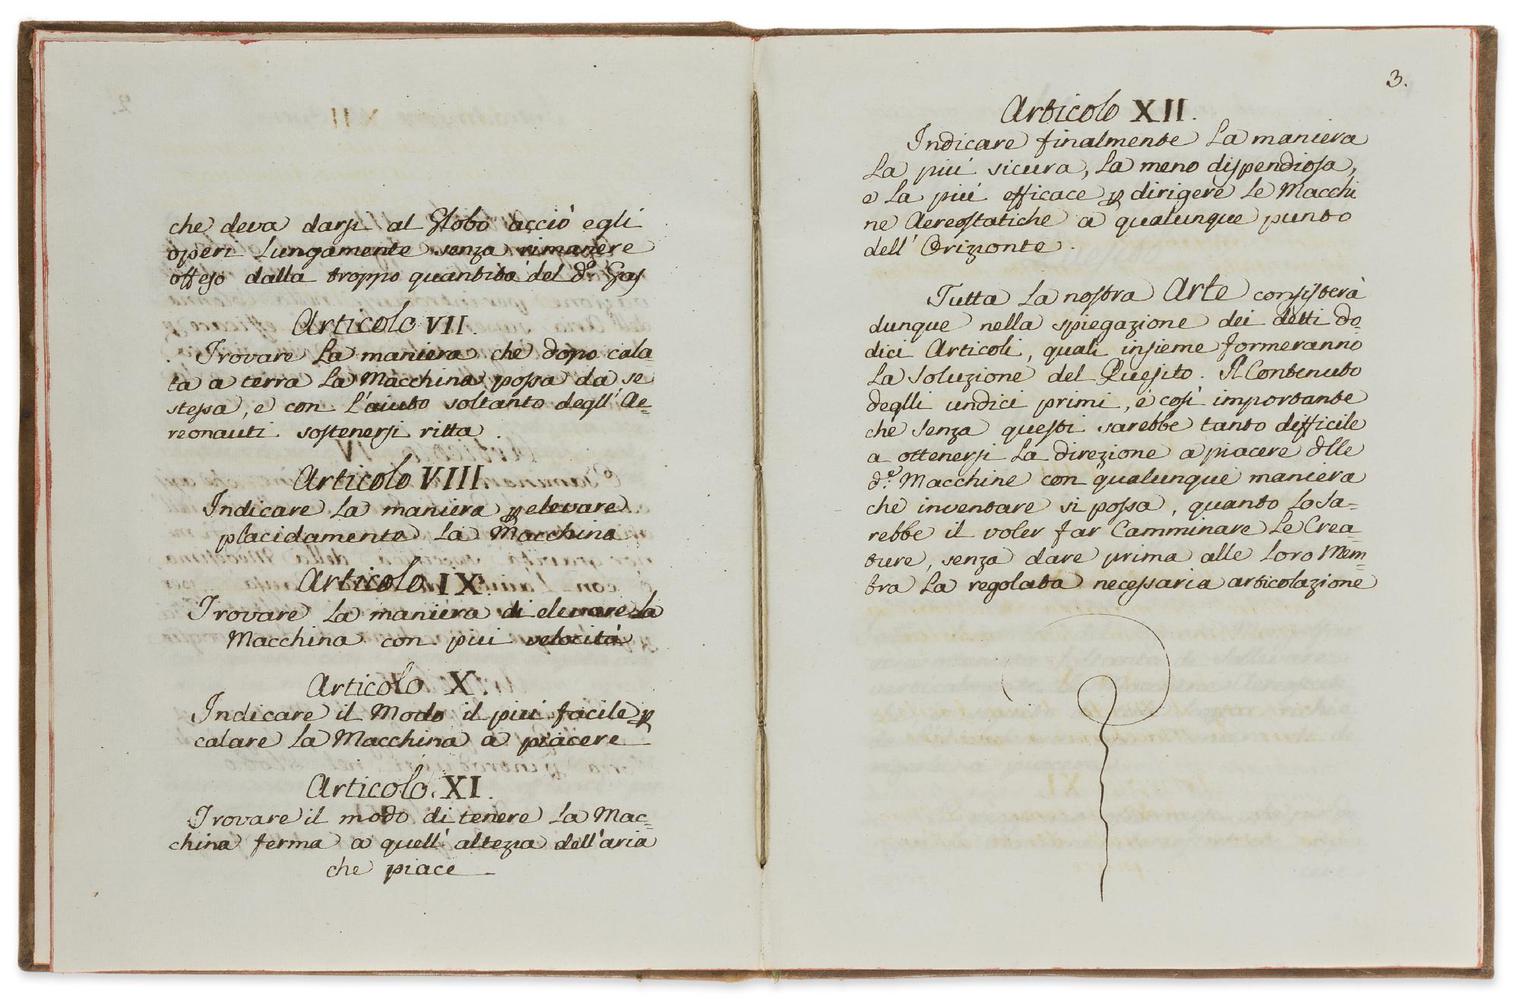 che deva darsi al Globo acciò egli
operi Lungamente senza rimanere
offeso dalla troppo quantità del d.º Gas
Articolo VII
Trovare La maniera che dopo cala
ta a terra La Macchina possa da se
stessa, e con L'aiuto soltanto degll' Ae=
reonauti sostenersi ritta.
Articolo VIII
Indicare La maniera p elevare
placidamente La Macchina
Articolo IX
Trovare La maniera di elevare La
Macchina con piui velocità
Articolo X.
Indicare il Modo il piui facile p
calare La Macchina a piacere
Articolo XI.
Trovare il modo di tenere La Mac=
china ferma a quell' altezza dell'aria
che piace
3.
Articolo XII.
Indicare finalmente La maniera
La piui sicura, La meno dispendiosa,
e La piui efficace p dirigere Le Macchi
ne Aereostatiche a qualunque punto
dell' Orizzonte.
Tutta La nostra Arte consisterà
dunque nella spiegazione dei detti do=
dici Articoli, quali insieme formeranno
La Soluzione del Quesito. Il Contenuto
deglli undici primi, è così importante
che senza questi sarebbe tanto difficile
a ottenersi La direzione a piacere dlle
d.e Macchine con qualunque maniera
che inventare si possa, quanto Lo sa=
rebbe il voler far Camminare Le Crea=
ture, senza dare prima alle Loro Mem=
bra La regolata necessaria articolazione